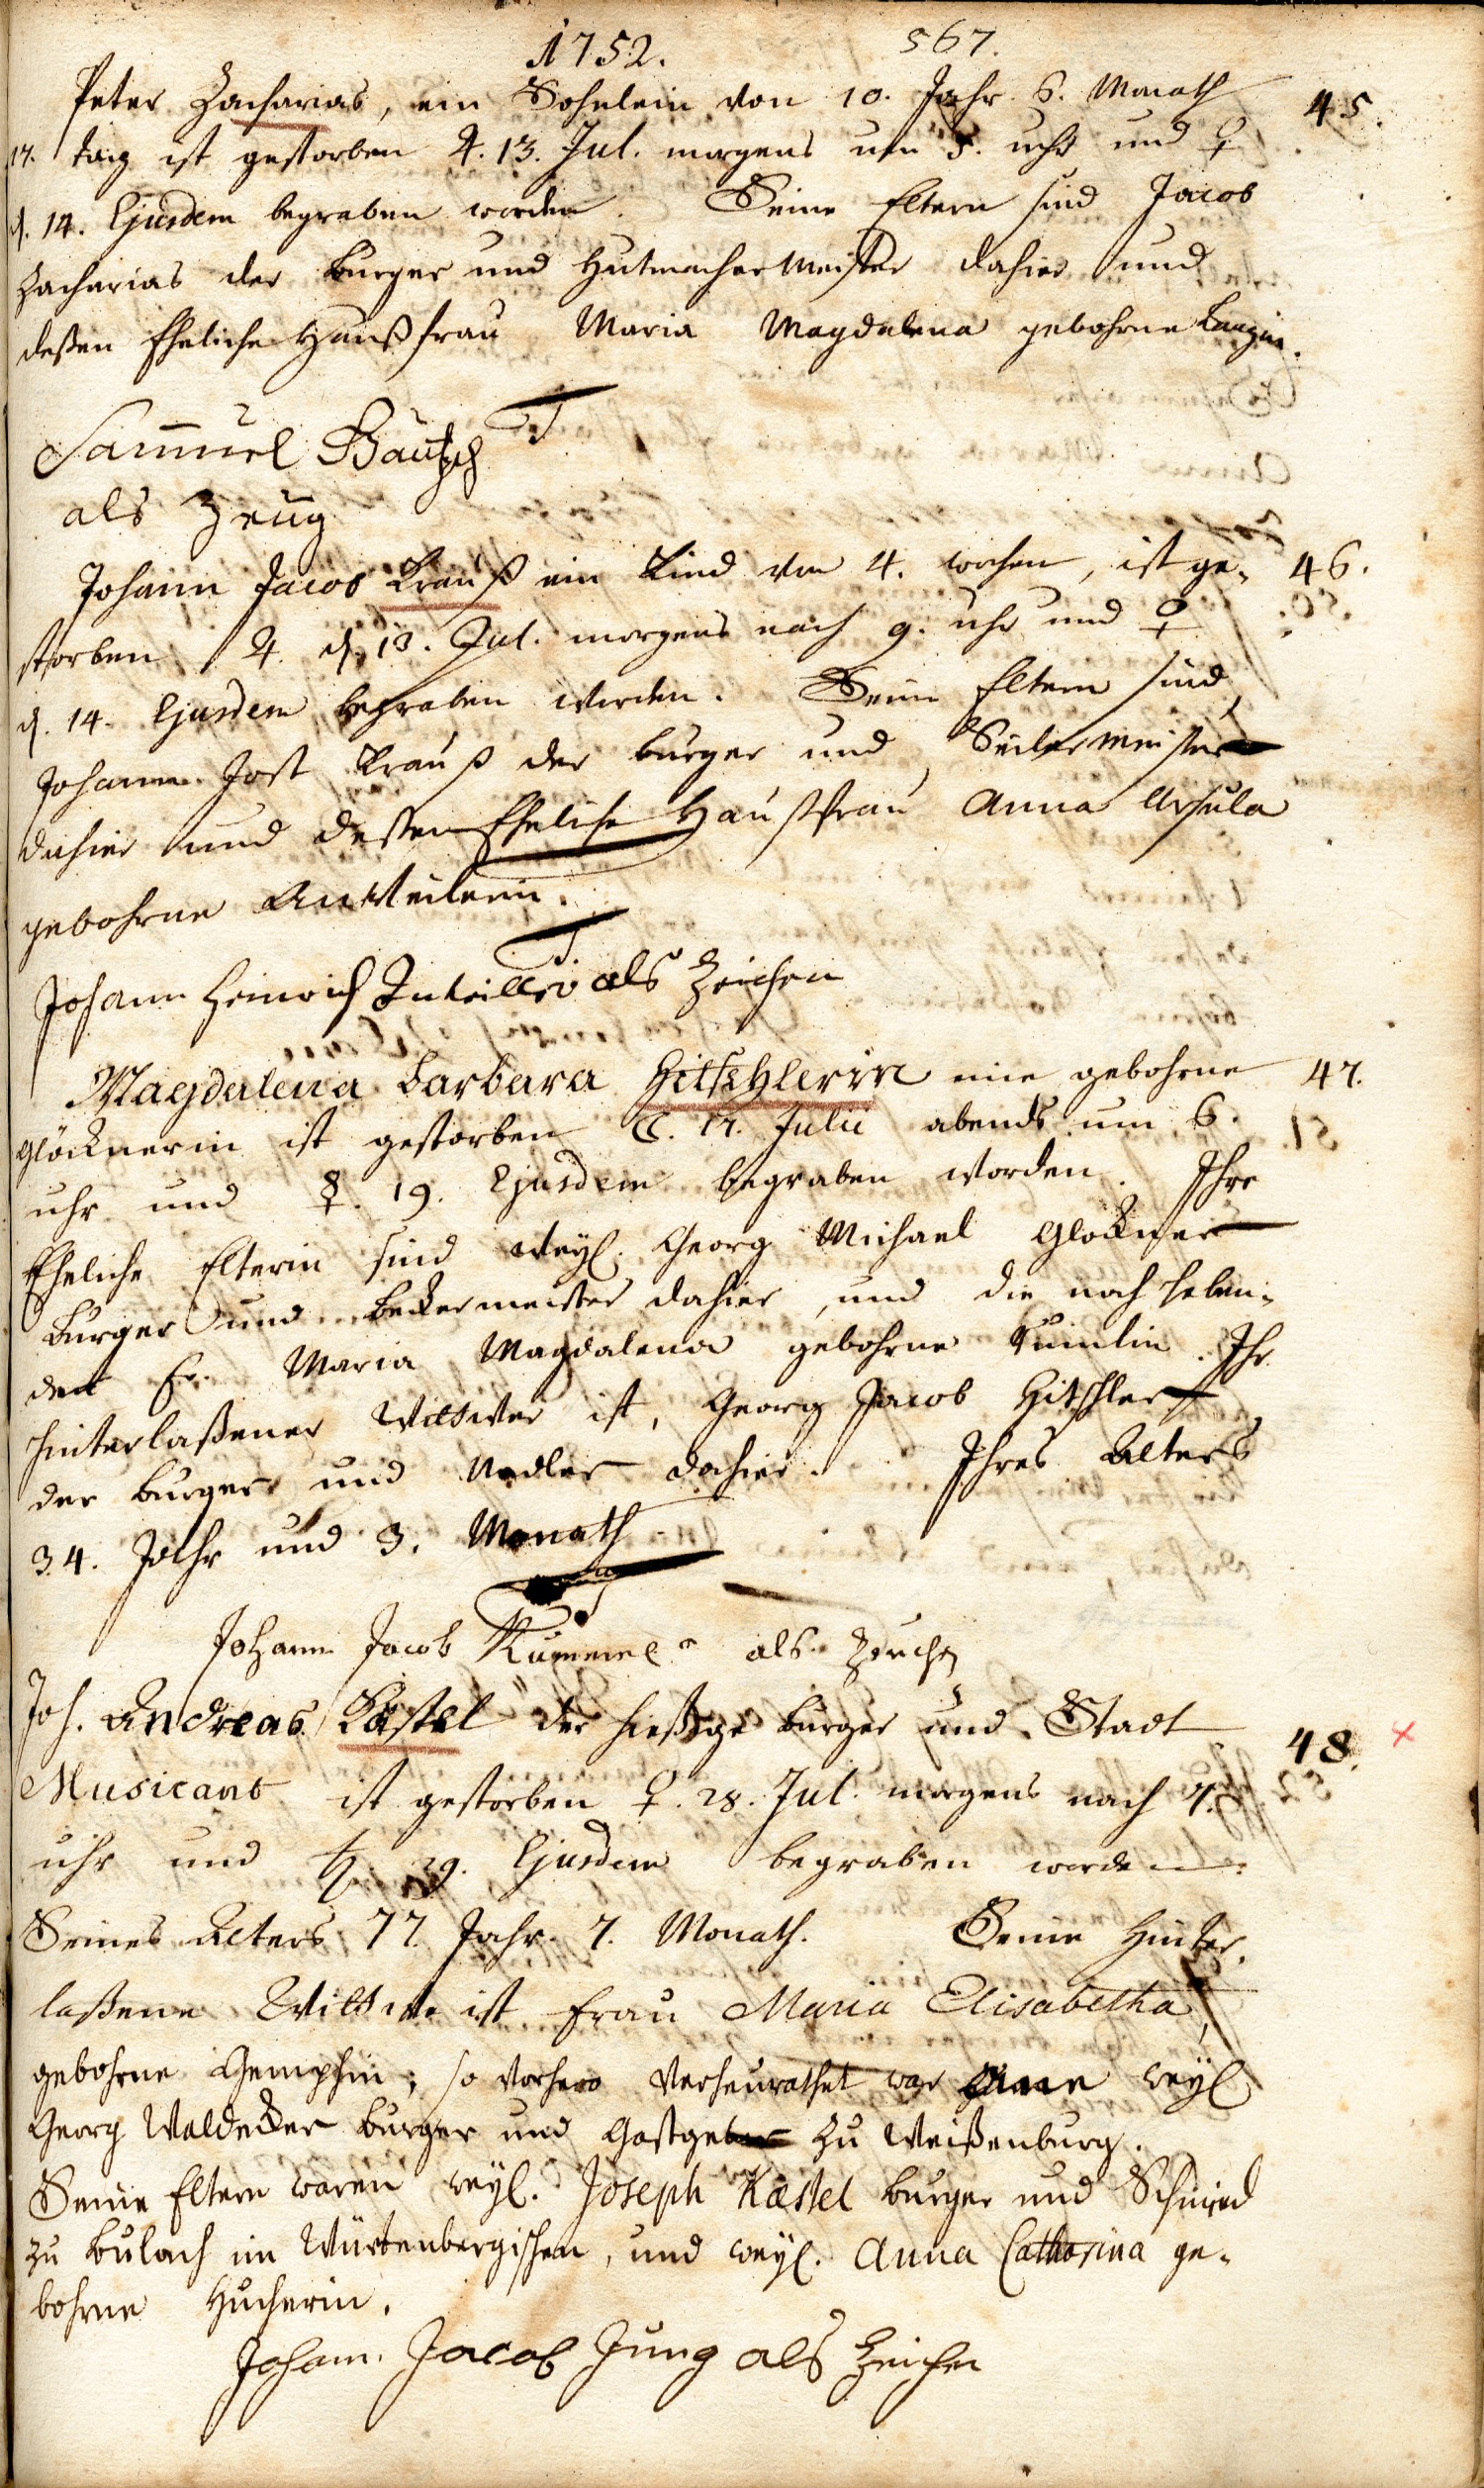 1752. 567.
Peter Zacharias, ein Sohnlein von 10. Jahr 6. Monath 45.
17. tag ist gestorben ♃. 13. Jul. morgens um 5. uhr und ♀
d. 14. Ejusdem begraben worden. Seine Eltern sind Jacob
Zacharias der burger und Hutmachermeister dahier und
deßen Eheliche Haußfrau Maria Magdalena gebohrne Langin.
Sammuel Bäutsch
als Zeug
Johann Jacob Krauß ein Kind von 4. wochen, ist ge- 46.
storben ♃. d. 13. Jul. morgens nach 9. uhr und ♀
d. 14. Ejusdem begraben worden. Seine Eltern sind
Johann Jost Krauß der burger und Seilermeister
dahier und deßen Eheliche Haußfrau Anna Ursula
gebohrne
Johann Heinrich als Zeichen
Magdalena Barbara Hitschlerin eine gebohrne 47.
Glöcknerin ist gestorben ☾. 17. Julii abends um 6.
uhr und ☿. 19. Ejusdem begraben worden. Ihre
Eheliche Elterin sind weyl. Georg Michael Glöckner
Burger und beckermeister dahier, und die noch leben-
den Fr. Maria Magdalena gebohrne Ihr
hinterlaßener Wittwer ist, Georg Jacob Hitschler
der burger und Nadler dahier. Ihres Alters
34. Jahr und 3. Monath
Johann Jacob Kummel als Zeuch
Joh. Andreas Kæstel der hießige burger und Stadt 48.
Musicant ist gestorben ♀. 28. Jul. morgens nach 7.
uhr und ♄. 29. Ejusdem begraben worden.
Seines Alters 77. Jahr. 7. Monath. Seine Hinter-
laßene Wittwe ist Frau Maria Elisabetha,
gebohrne Gemphin; so vorhero verheurathet war weyl
Georg Waldecker burger und Gastgeber zu Weißenburg.
Seine Eltern waren weyl. Joseph Kæstel burger und Schmied
zu Bulach im Würtenbergischen, und weyl. Anna Catharina ge-
bohrne Hucherin.
Johann Jacob Jung als Zeichen